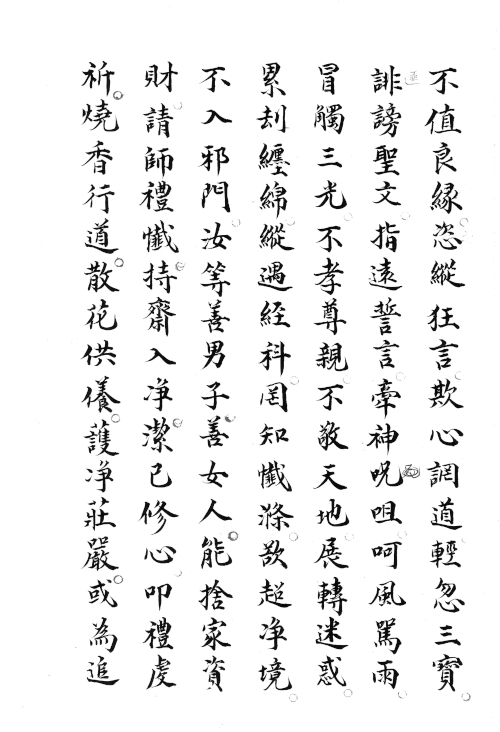 不值良緣恣縱狂言欺心謂道輕忽三寶
誹謗聖文指遠誓言牽神呪咀呵風罵雨
冒觸三光不孝尊親不敬天地展轉迷惑
累刦纏綿縱遇經科罔知懺滌欲超净境
不入邪門汝等善男子善女人能捨家資
財請師禮懺持齋入净潔己修心叩禮虔
祈燒香行道散花供養護净莊嚴或為追